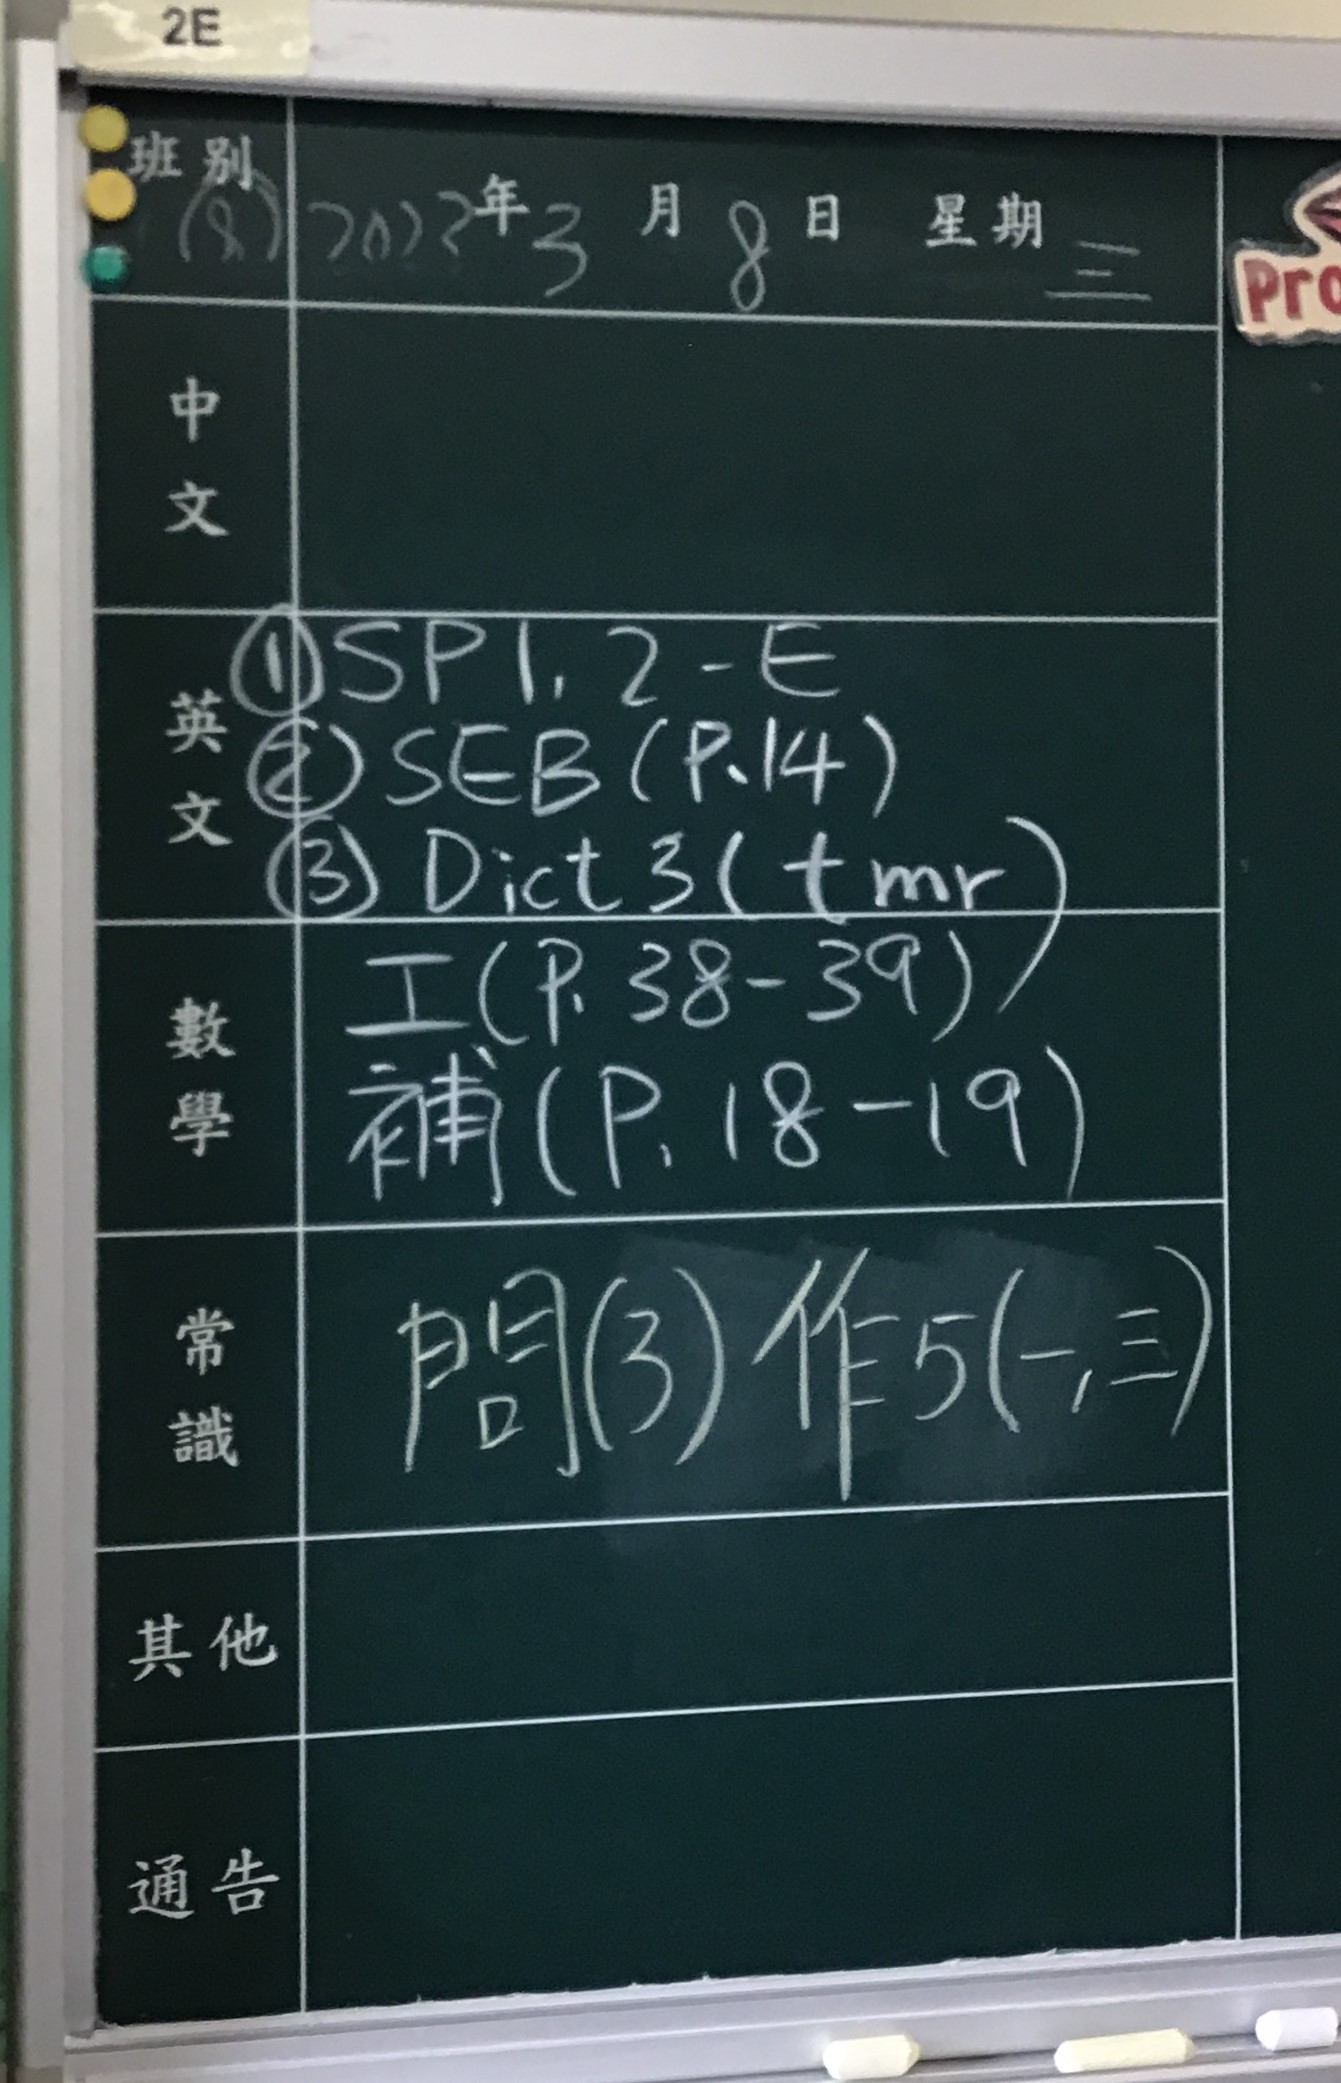 2E
班別
(8) 2023年3月8日 星期三
中文
英文
①SP 1, 2 - E
②SEB (P.14)
③ Dict 3 (tmr)
數學
工(P. 38-39)
補(P. 18-19)
常識
問(3) 作5(一,三)
其他
通告
Pro